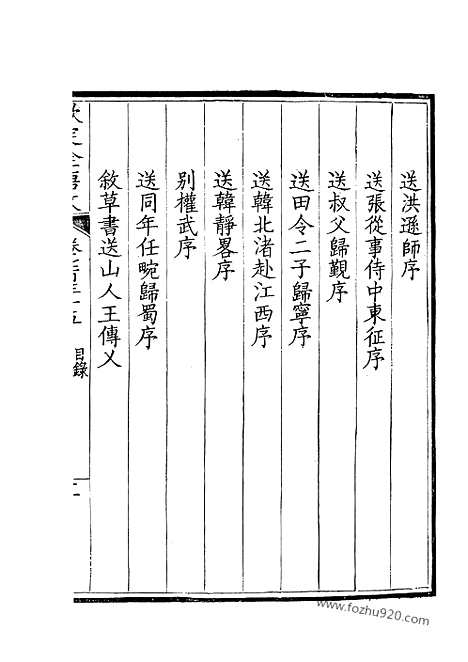 送洪遜師序
送張從事侍中東征序
送叔父歸覲序
送田令二子歸寧序
送韓北渚赴江西序
送韓靜畧序
別權武序
送同年任畹歸蜀序
敘草書送山人王傳乂
欽定全唐文
卷七百三十五
目錄
二
www.fozhu920.com